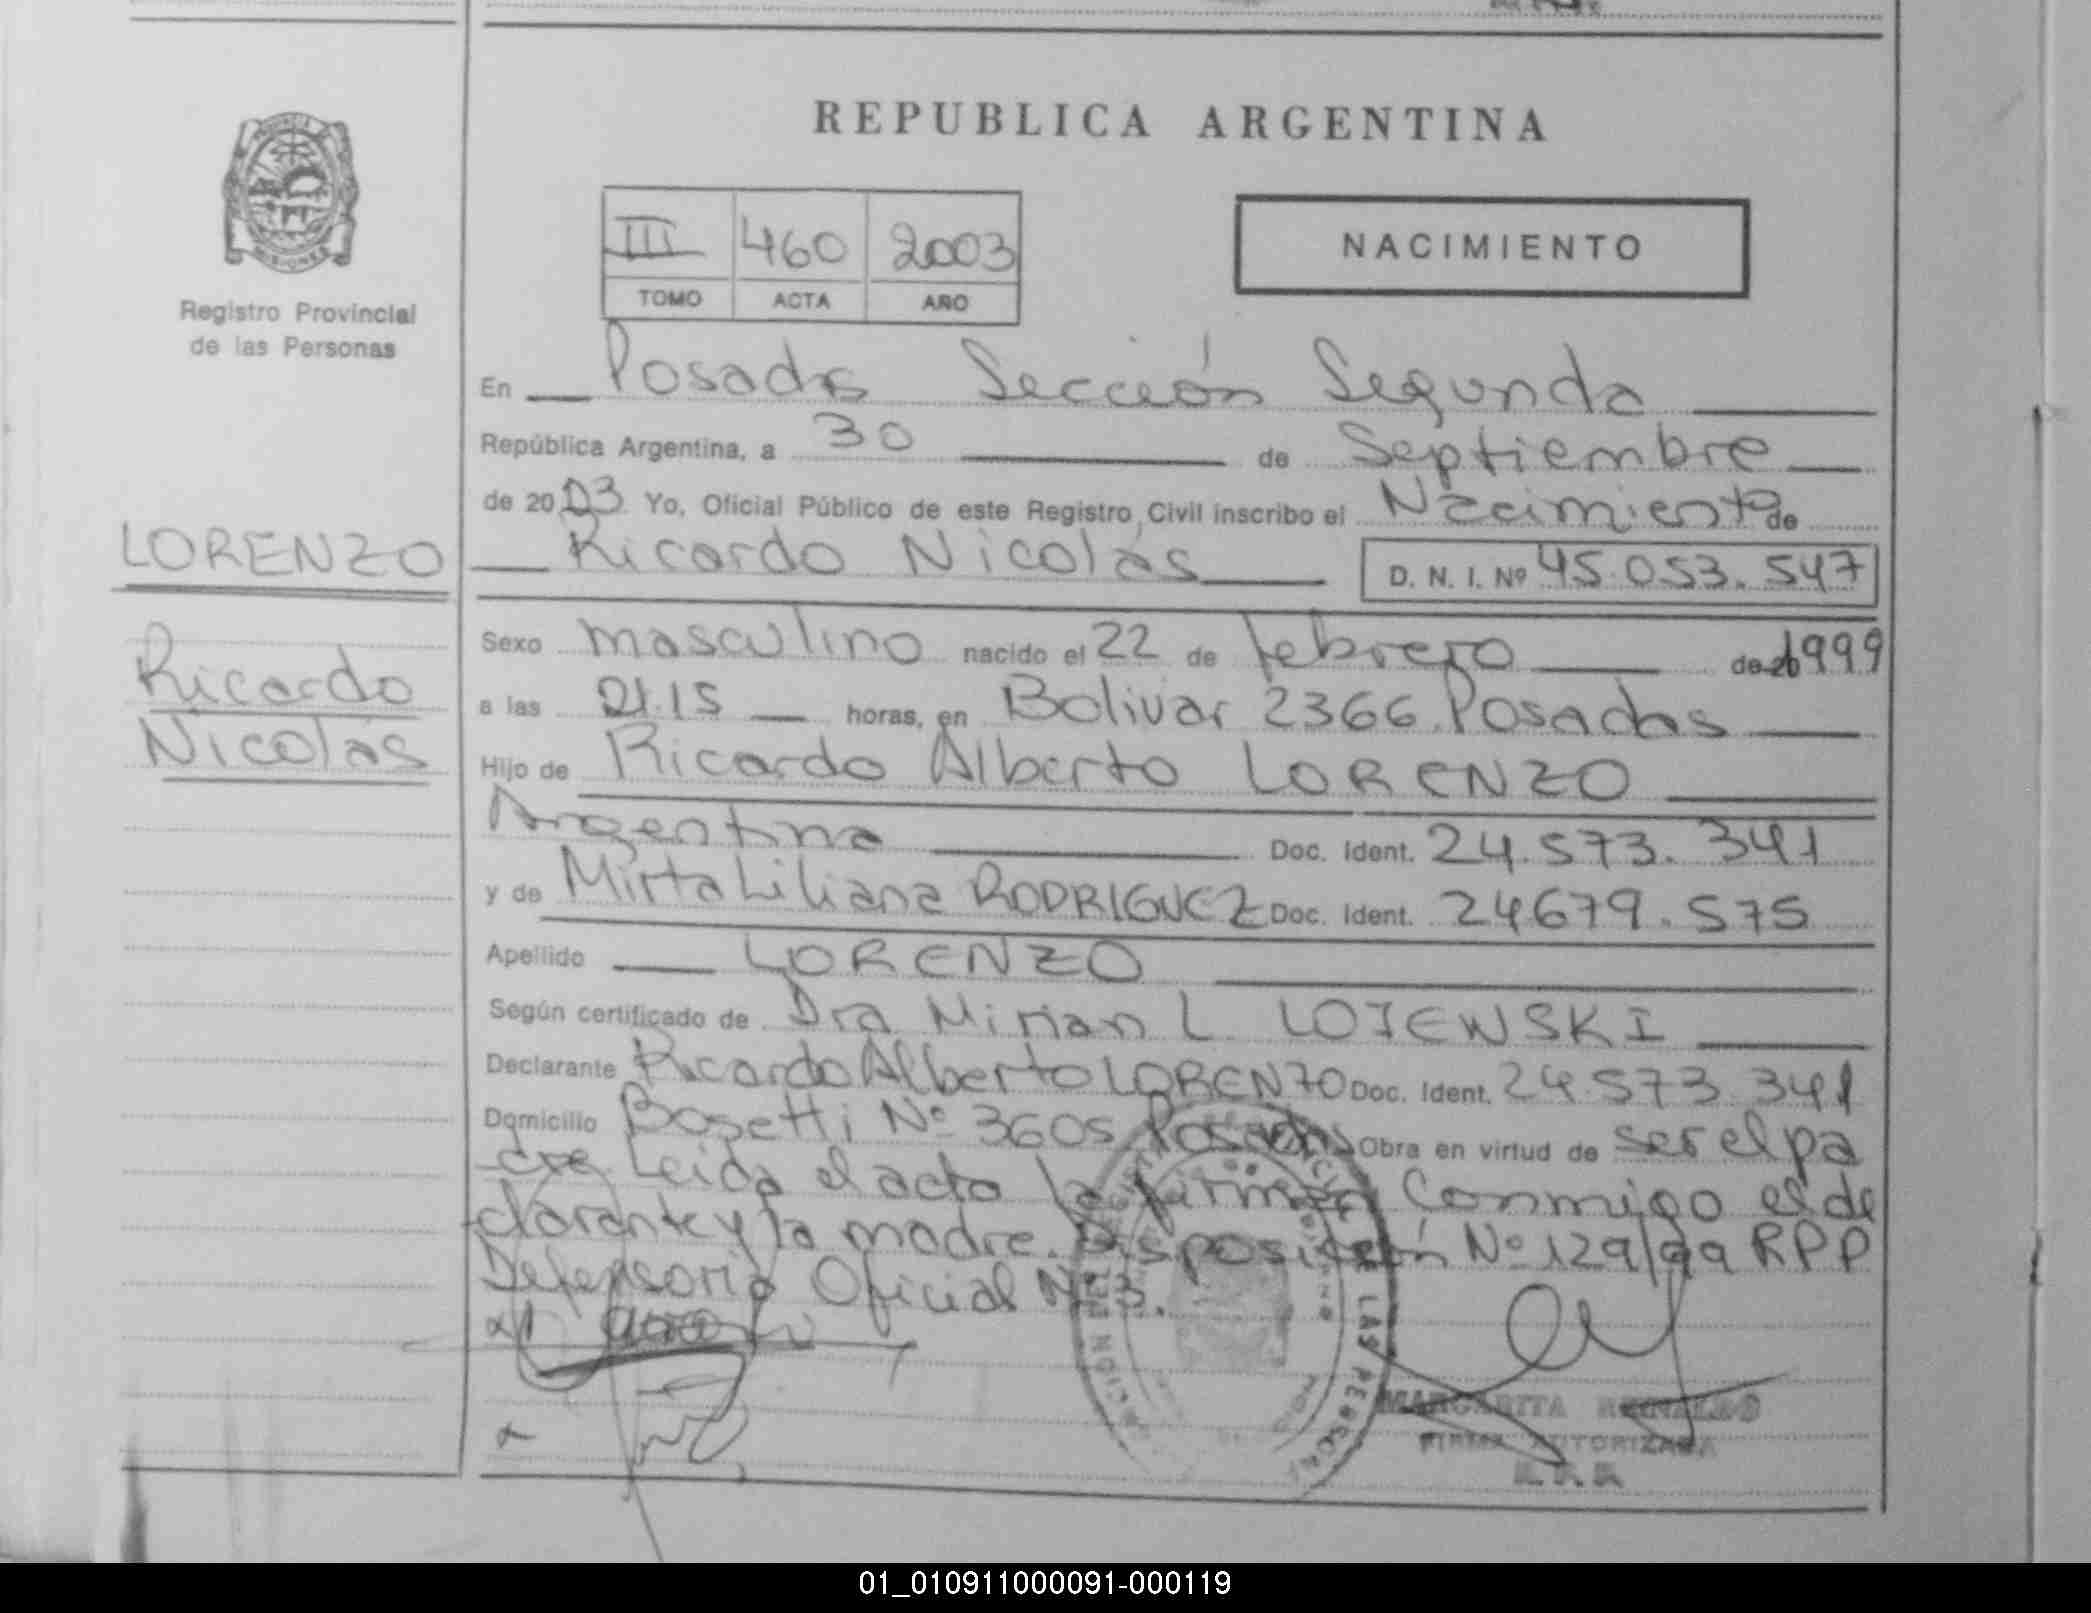 REPUBLICA ARGENTINA
PROVINCIA DE
MISIONES
Registro Provincial
de las Personas
III 460 2003
TOMO ACTA AÑO
NACIMIENTO
En Posadas Sección Segunda
República Argentina, a 30 de Septiembre
de 2003 Yo, Oficial Público de este Registro Civil inscribo el Nacimiento de
LORENZO
Ricardo
Nicolás
Ricardo Nicolás D. N. I. Nº 45.053.547
Sexo masculino nacido el 22 de febrero de 1999
a las 21.15 horas, en Bolivar 2366 Posadas
Hijo de Ricardo Alberto LORENZO
Argentina Doc. Ident. 24.573.341
y de Mirta Liliana RODRIGUEZ Doc. Ident. 24679.575
Apellido LORENZO
Según certificado de Dra Mirian L. LOJEWSKI
Declarante Ricardo Alberto LORENZO Doc. Ident. 24.573.341
Domicilio Bosetti Nº 3605 Posadas Obra en virtud de ser el pa
dre. Leida el acta la firman Conmigo el de
clarante y la madre. Disposición Nº 129/99 RPP
Defensoria Oficial Nº 3.
LAS PERSONAS
MARGARITA
FIRMA AUTORIZADA
01_010911000091-000119